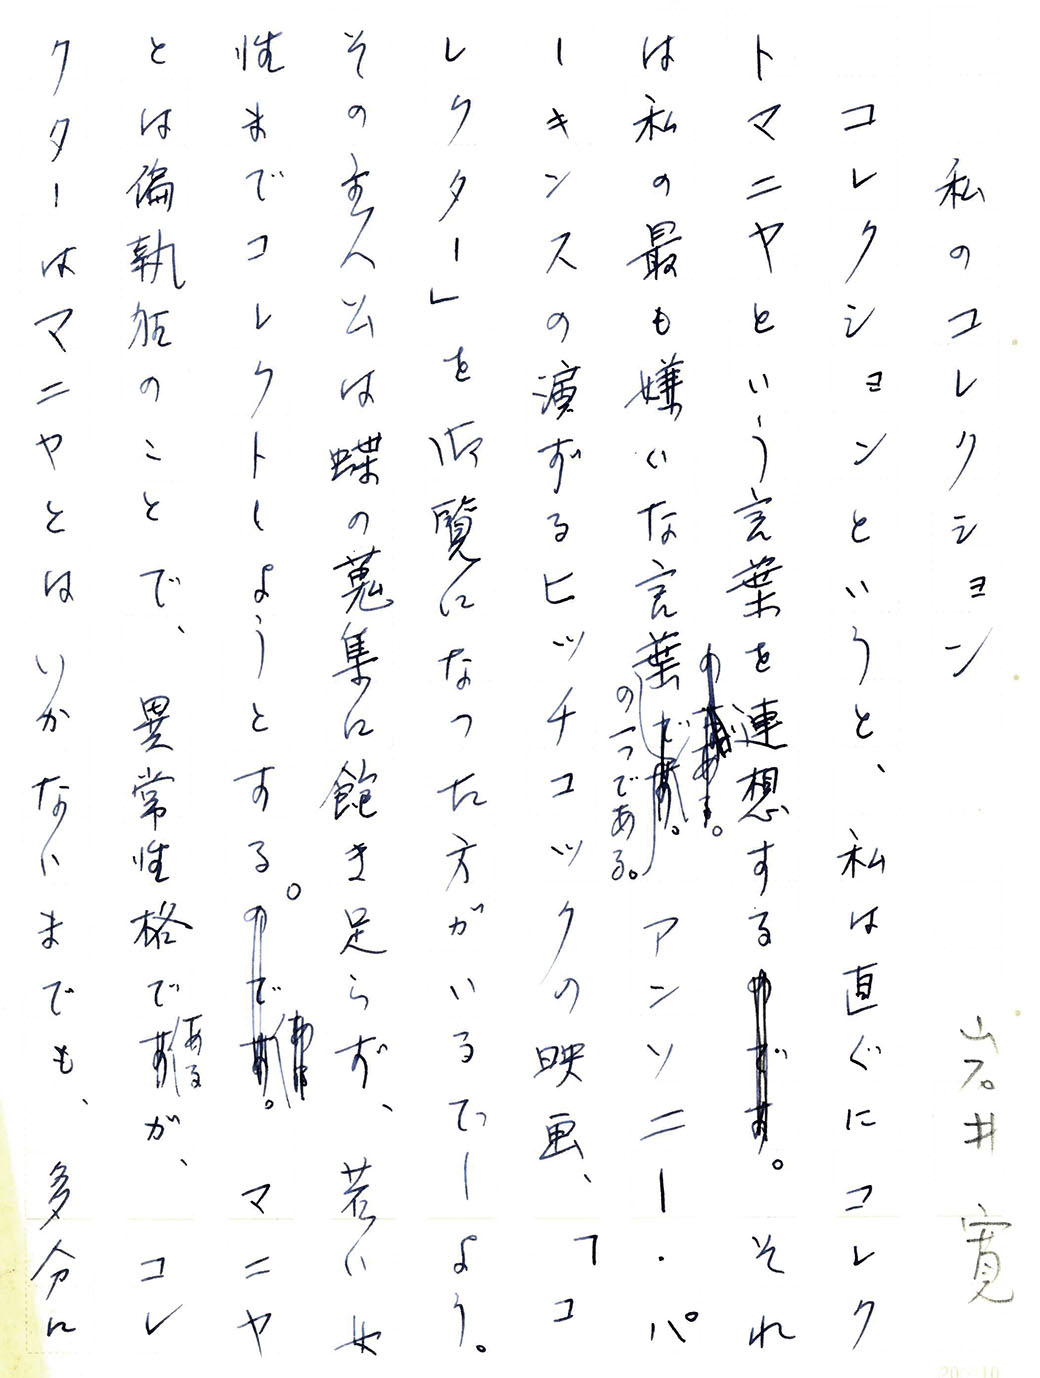 私のコレクション　岩井　寛
コレクションというと、私は直ぐにコレク
トマニヤという言葉を連想するのです。それ
は私の最も嫌いな言葉の一つである。アンソニー・パ
ーキンスの演ずるヒッチコックの映画、「コ
レクター」を御覧になった方がいるでしょう。
その主人公は蝶の蒐集に飽き足らず、若い女
性までコレクトしようとする。のです。マニヤ
とは偏執狂のことで、異常性格であるが、コレ
クターはマニヤとはいかないまでも、多分に